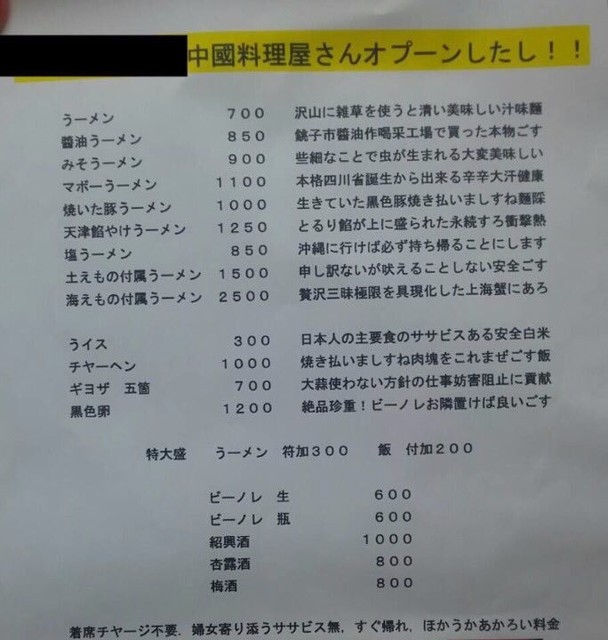 中國料理屋さんオプーンしたし！！
うーメン　７００　沢山に雑草を使うと清い美味しい汁味麺
醬油うーメン　８５０　銚子市醬油作喝采工場で買った本物ごす
みそうーメン　９００　些細なことで虫が生まれる大変美味しい
マボーうーメン　１１００　本格四川省誕生から出来る辛辛大汗健康
焼いた豚うーメン　１０００　生きていた黒色豚焼き払いましすね麺採
天津餡やけうーメン　１２５０　とるり餡が上に盛られた永続すろ衝撃熱
塩うーメン　８５０　沖縄に行けば必ず持ち帰ることにします
土えもの付属うーメン　１５００　申し訳ないが吠えることしない安全ごす
海えもの付属うーメン　２５００　贅沢三昧極限を具現化した上海蟹にあろ
うイス　３００　日本人の主要食のササビスある安全白米
チヤーヘン　１０００　焼き払いましすね肉塊をこれまぜごす飯
ギヨザ　五箇　７００　大蒜使わない方針の仕事妨害阻止に貢献
黒色卵　１２００　絶品珍重！ビーノレお隣置けば良いごす
特大盛　うーメン　符加３００　飯　付加２００
ビーノレ　生　６００
ビーノレ　瓶　６００
紹興酒　１０００
杏露酒　８００
梅酒　８００
着席チヤージ不要．婦女寄り添うササビス無，すぐ帰れ，ほかうかあかろい料金